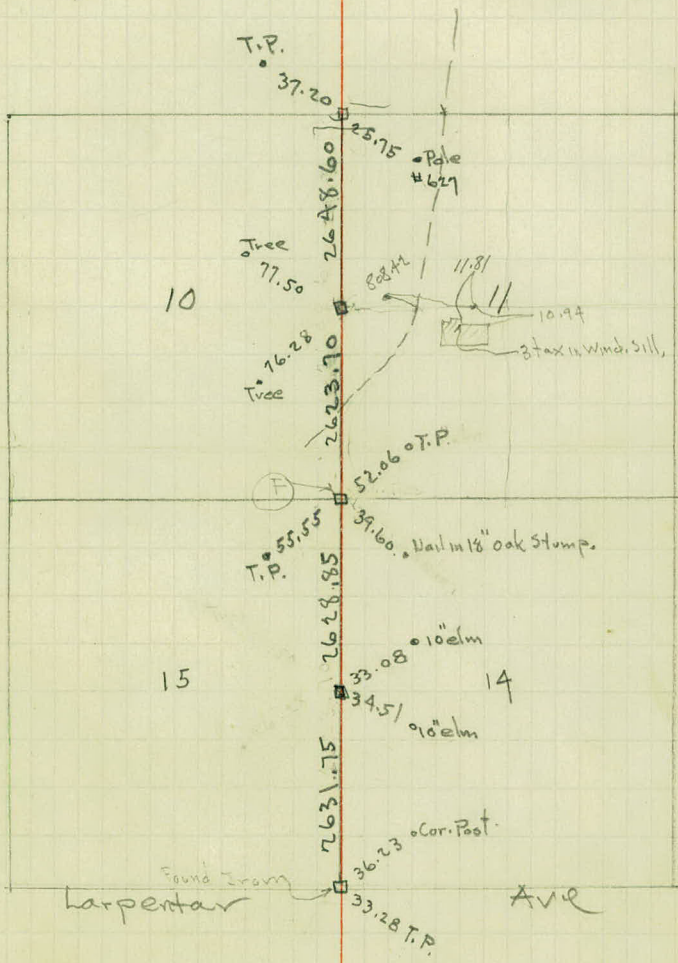 T.P.
37.20
25.75
Pole
#627
2648.60
Tree
77.50
808.42
11.81
10
11
10.94
3 tax in Wind. Sill,
76.28
Tree
2623.70
52.06 T.P.
F
55.55
T.P.
39.60
Nail in 18" oak Stump.
2628.85
10" elm
33.08
15
14
34.51
10" elm
2631.75
Cor. Post.
36.23
Found Iron
Larpentar Ave
33.28 T.P.